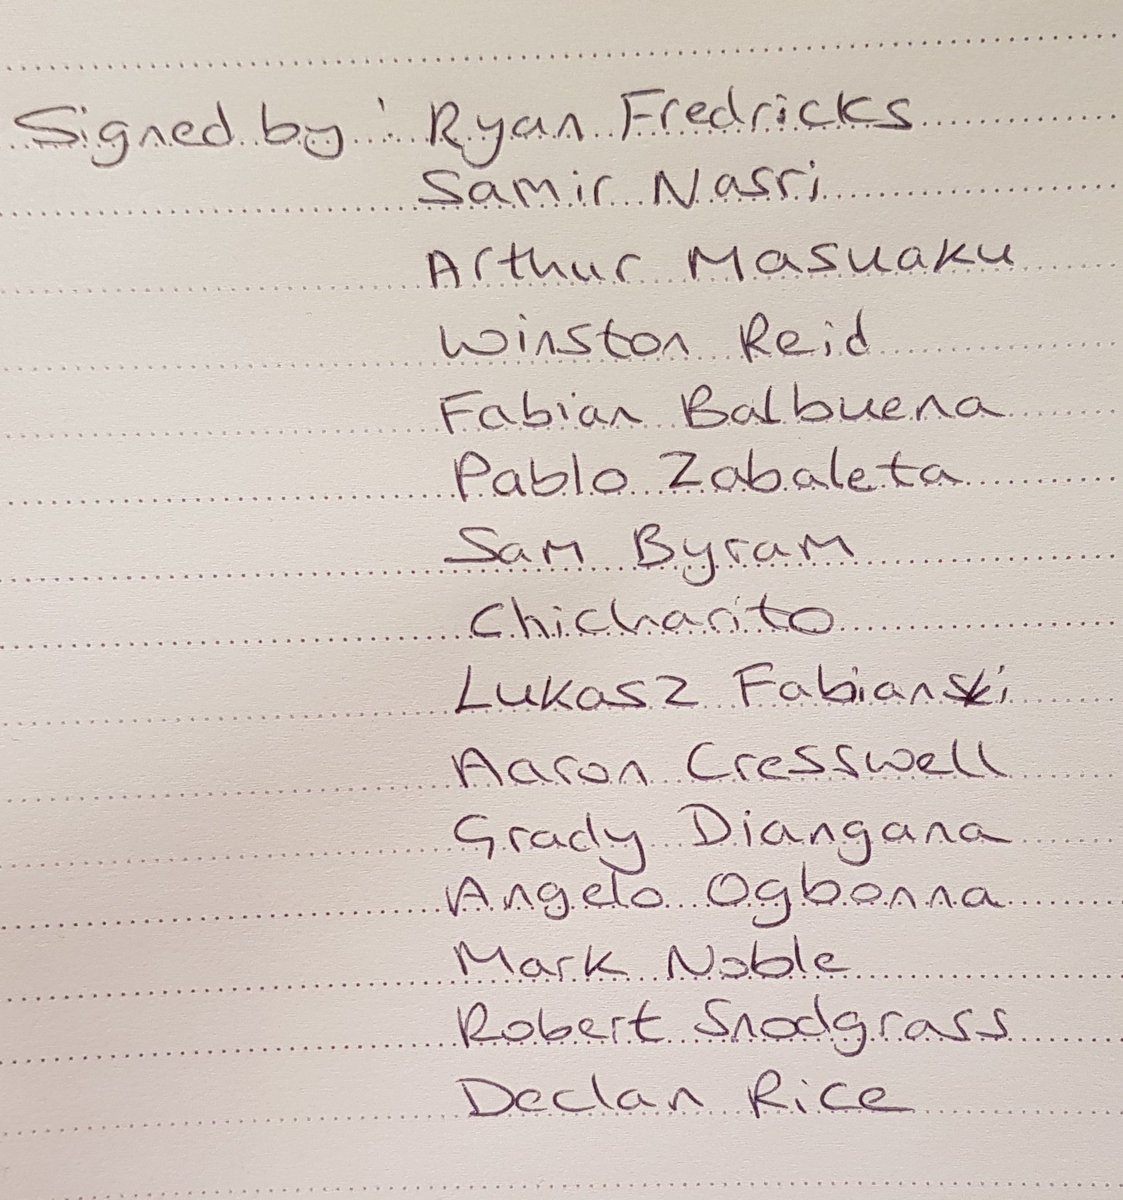 Signed by: Ryan Fredricks
Samir Nasri
Arthur Masuaku
Winston Reid
Fabian Balbuena
Pablo Zabaleta
Sam Byram
Chicharito
Lukasz Fabianski
Aaron Cresswell
Grady Diangana
Angelo Ogbonna
Mark Noble
Robert Snodgrass
Declan Rice